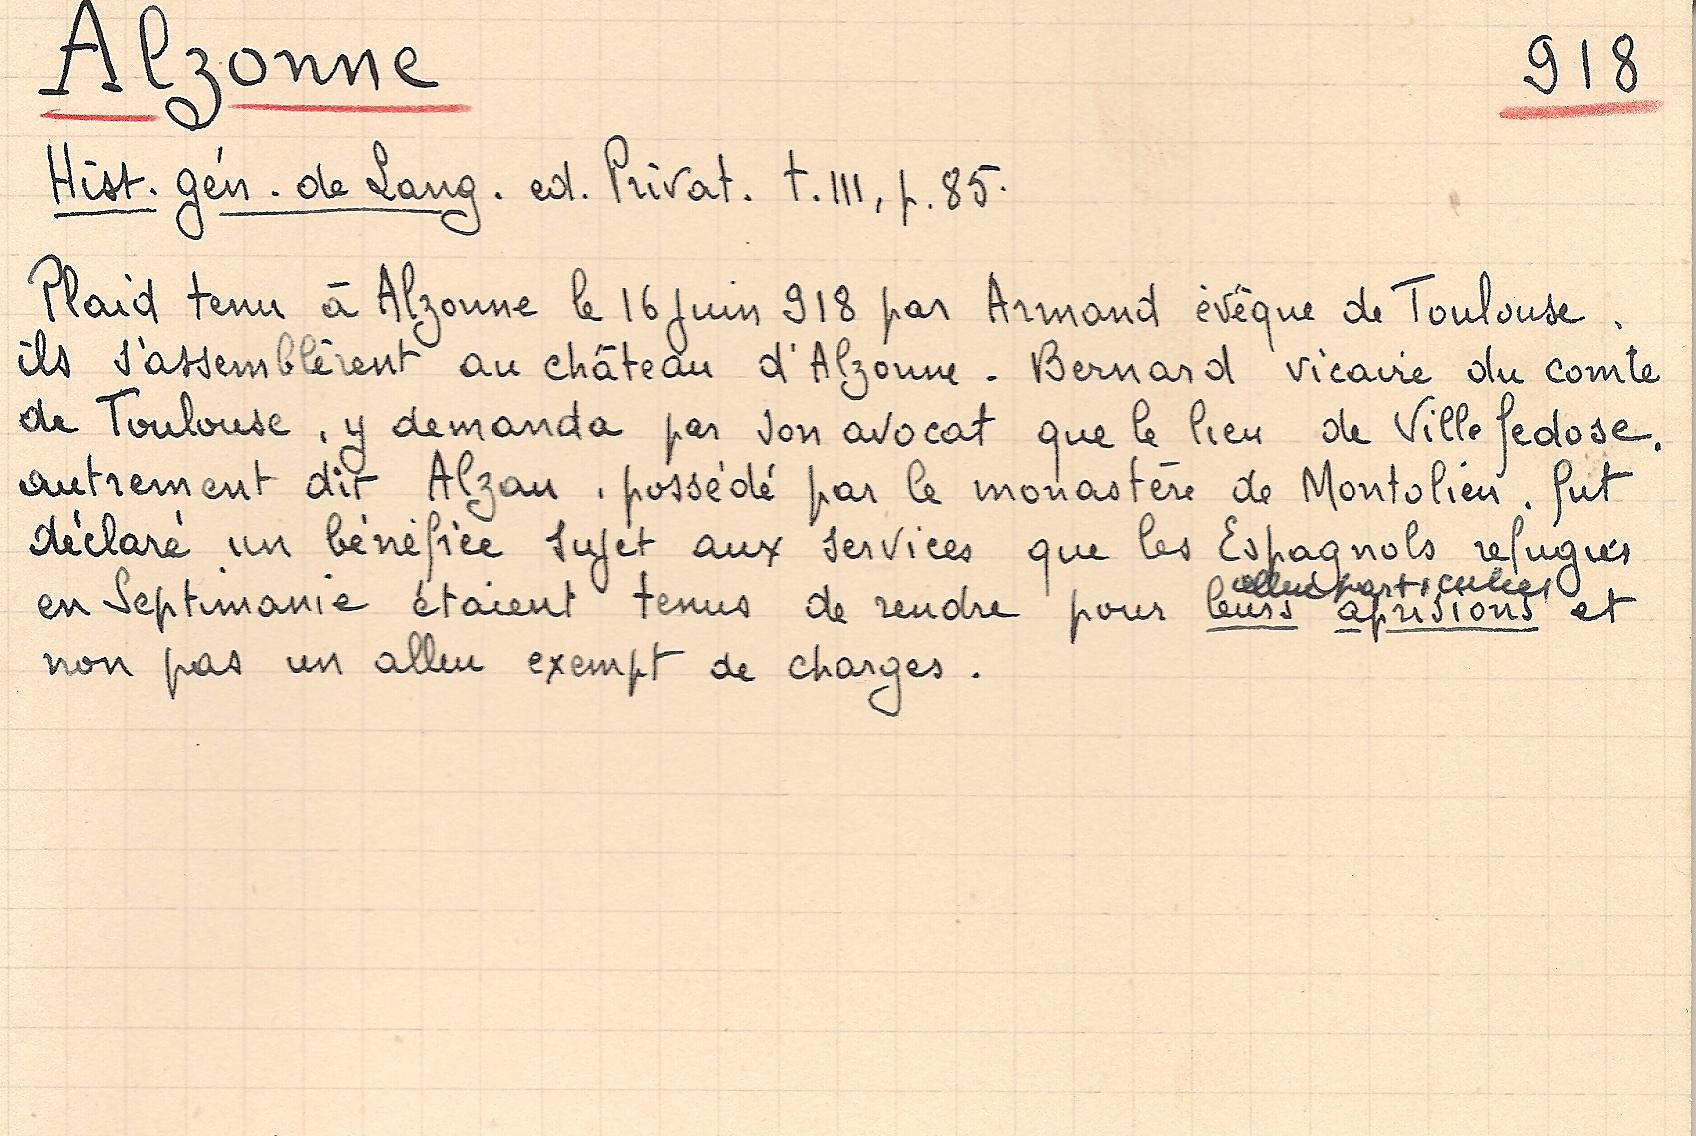 Alzonne 918
Hist. gén. de Lang. ed. Privat. t. III, p. 85.
Plaid tenu à Alzonne le 16 juin 918 par Armand évêque de Toulouse.
ils s'assemblèrent au château d'Alzonne. Bernard vicaire du comte
de Toulouse, y demanda par son avocat que le lieu de Villefedose,
autrement dit Alzau, possédé par le monastère de Montolieu, fut
déclaré un bénéfice sujet aux services que les Espagnols refugiés
alleux particuliers
en Septimanie étaient tenus de rendre pour leurs aprisions et
non pas un alleu exempt de charges.